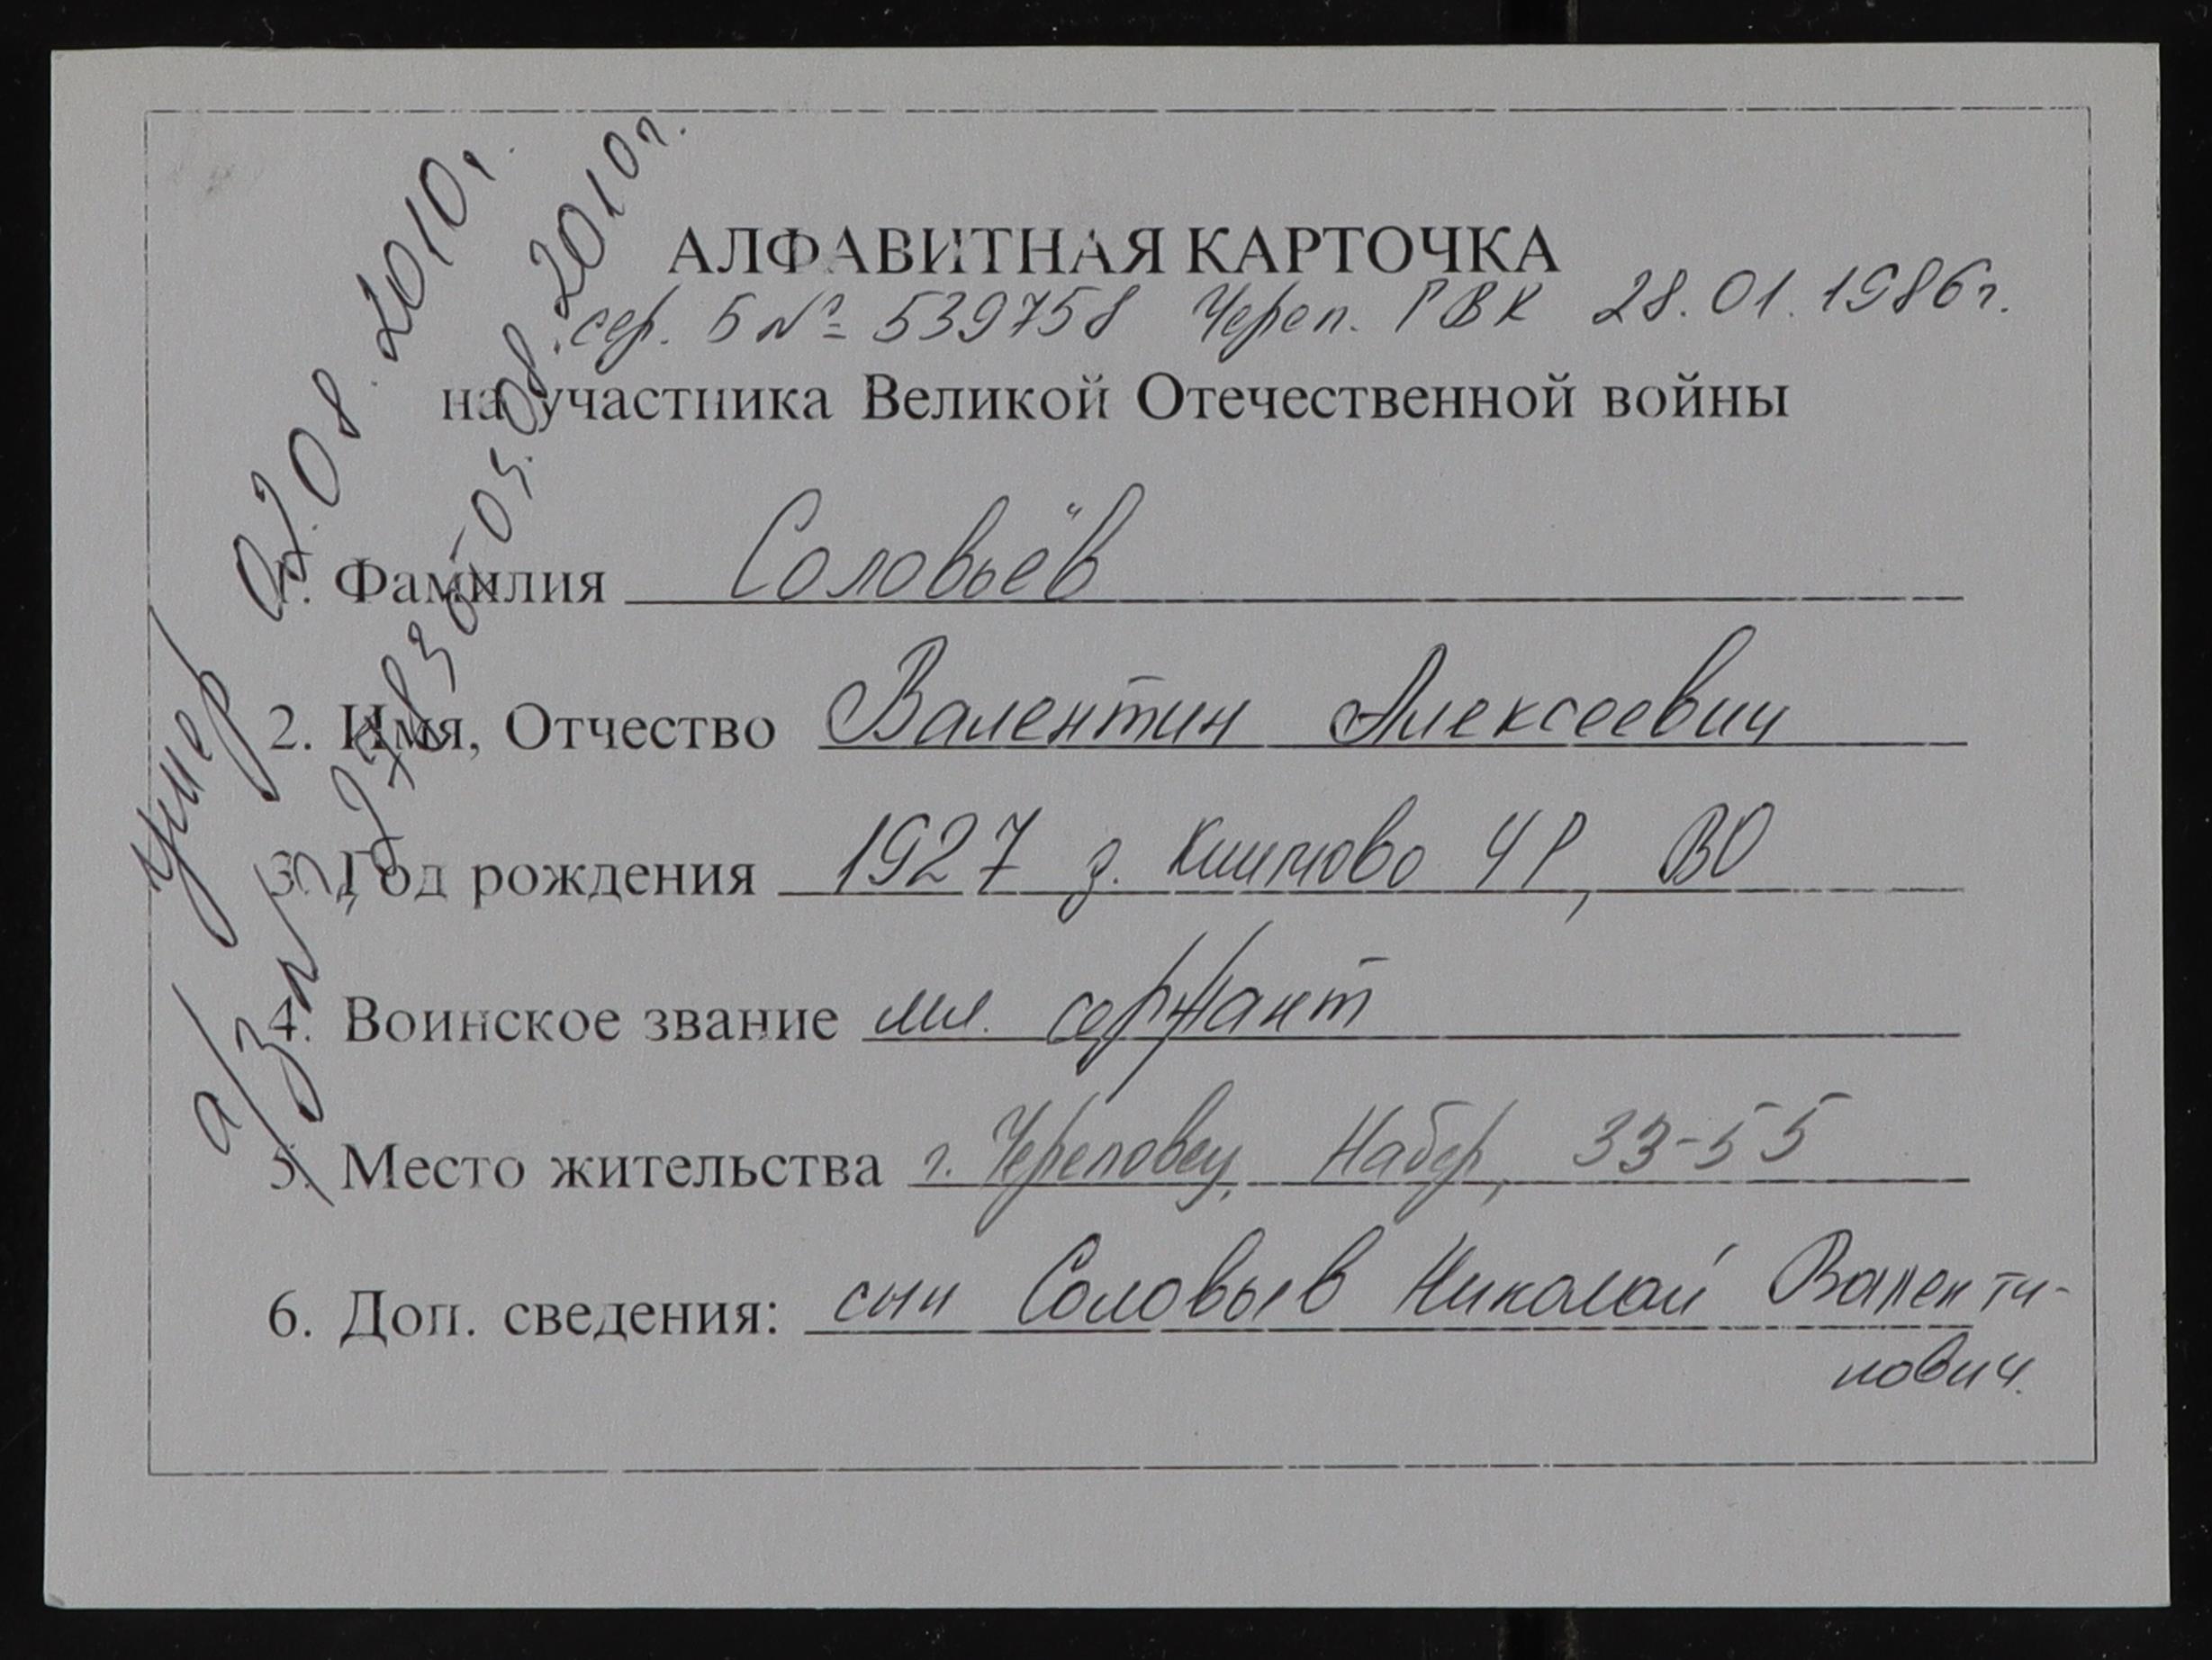 АЛФАВИТНАЯ КАРТОЧКА
сер. Б № 539758 Череп. ГВК 28.01.1986г.
на участника Великой Отечественной войны
1. Фамилия Соловьёв
2. Имя, Отчество Валентин Алексеевич
3. Год рождения 1927 д. ЧР, ВО
4. Воинское звание мл. сержант
5. Место жительства г. Череповец, Набер, 33-55
6. Доп. сведения: сын Соловьев Николай Валенти-
нович.
Умер 02.08.2010г.
а/з № от 05.08.2010г.